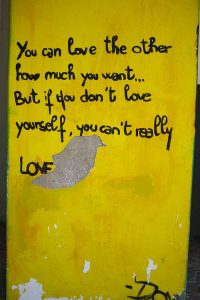 You can love the other
how much you want...
But if you don't love
yourself, you can't really
LOVE